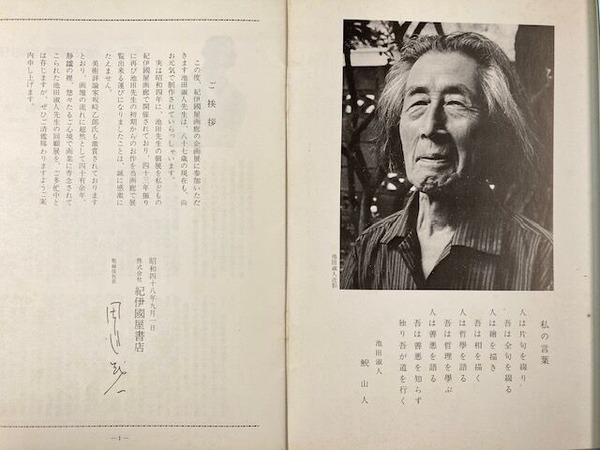 ご挨拶
この度、紀伊國屋画廊の企画展に参加いただ
きます池田淑人先生は、八十七歳の現在も、尚
お元気で制作されていらっしゃいます。
実は昭和四年に、池田先生の個展を私どもの
紀伊國屋画廊で開催されており、四十三年振り
に再び池田先生の初期からのお作を当画廊で展
覧出来る運びになりましたことは、誠に感激に
たえません。
美術評論家坂崎乙郎氏も激賞されております
とおり、画壇の流れに超然として四十有余年、
静謐の裡、悠々たるご心境で画業に専念されて
こられた池田淑人先生の回顧展を、ご多忙中と
は存じますが、ぜひご清鑑賜わりますようご案
内申し上げます。
昭和四十八年九月一日
株式会社 紀伊國屋書店
取締役社長
—1—
池田淑人近影
私の言葉
人は片句を綴り
吾は全句を綴る
人は繪を描き
吾は相を描く
人は哲學を語る
吾は哲理を學ぶ
人は善悪を語る
吾は善悪を知らず
独り吾が道を行く
池田淑人
鮫山人